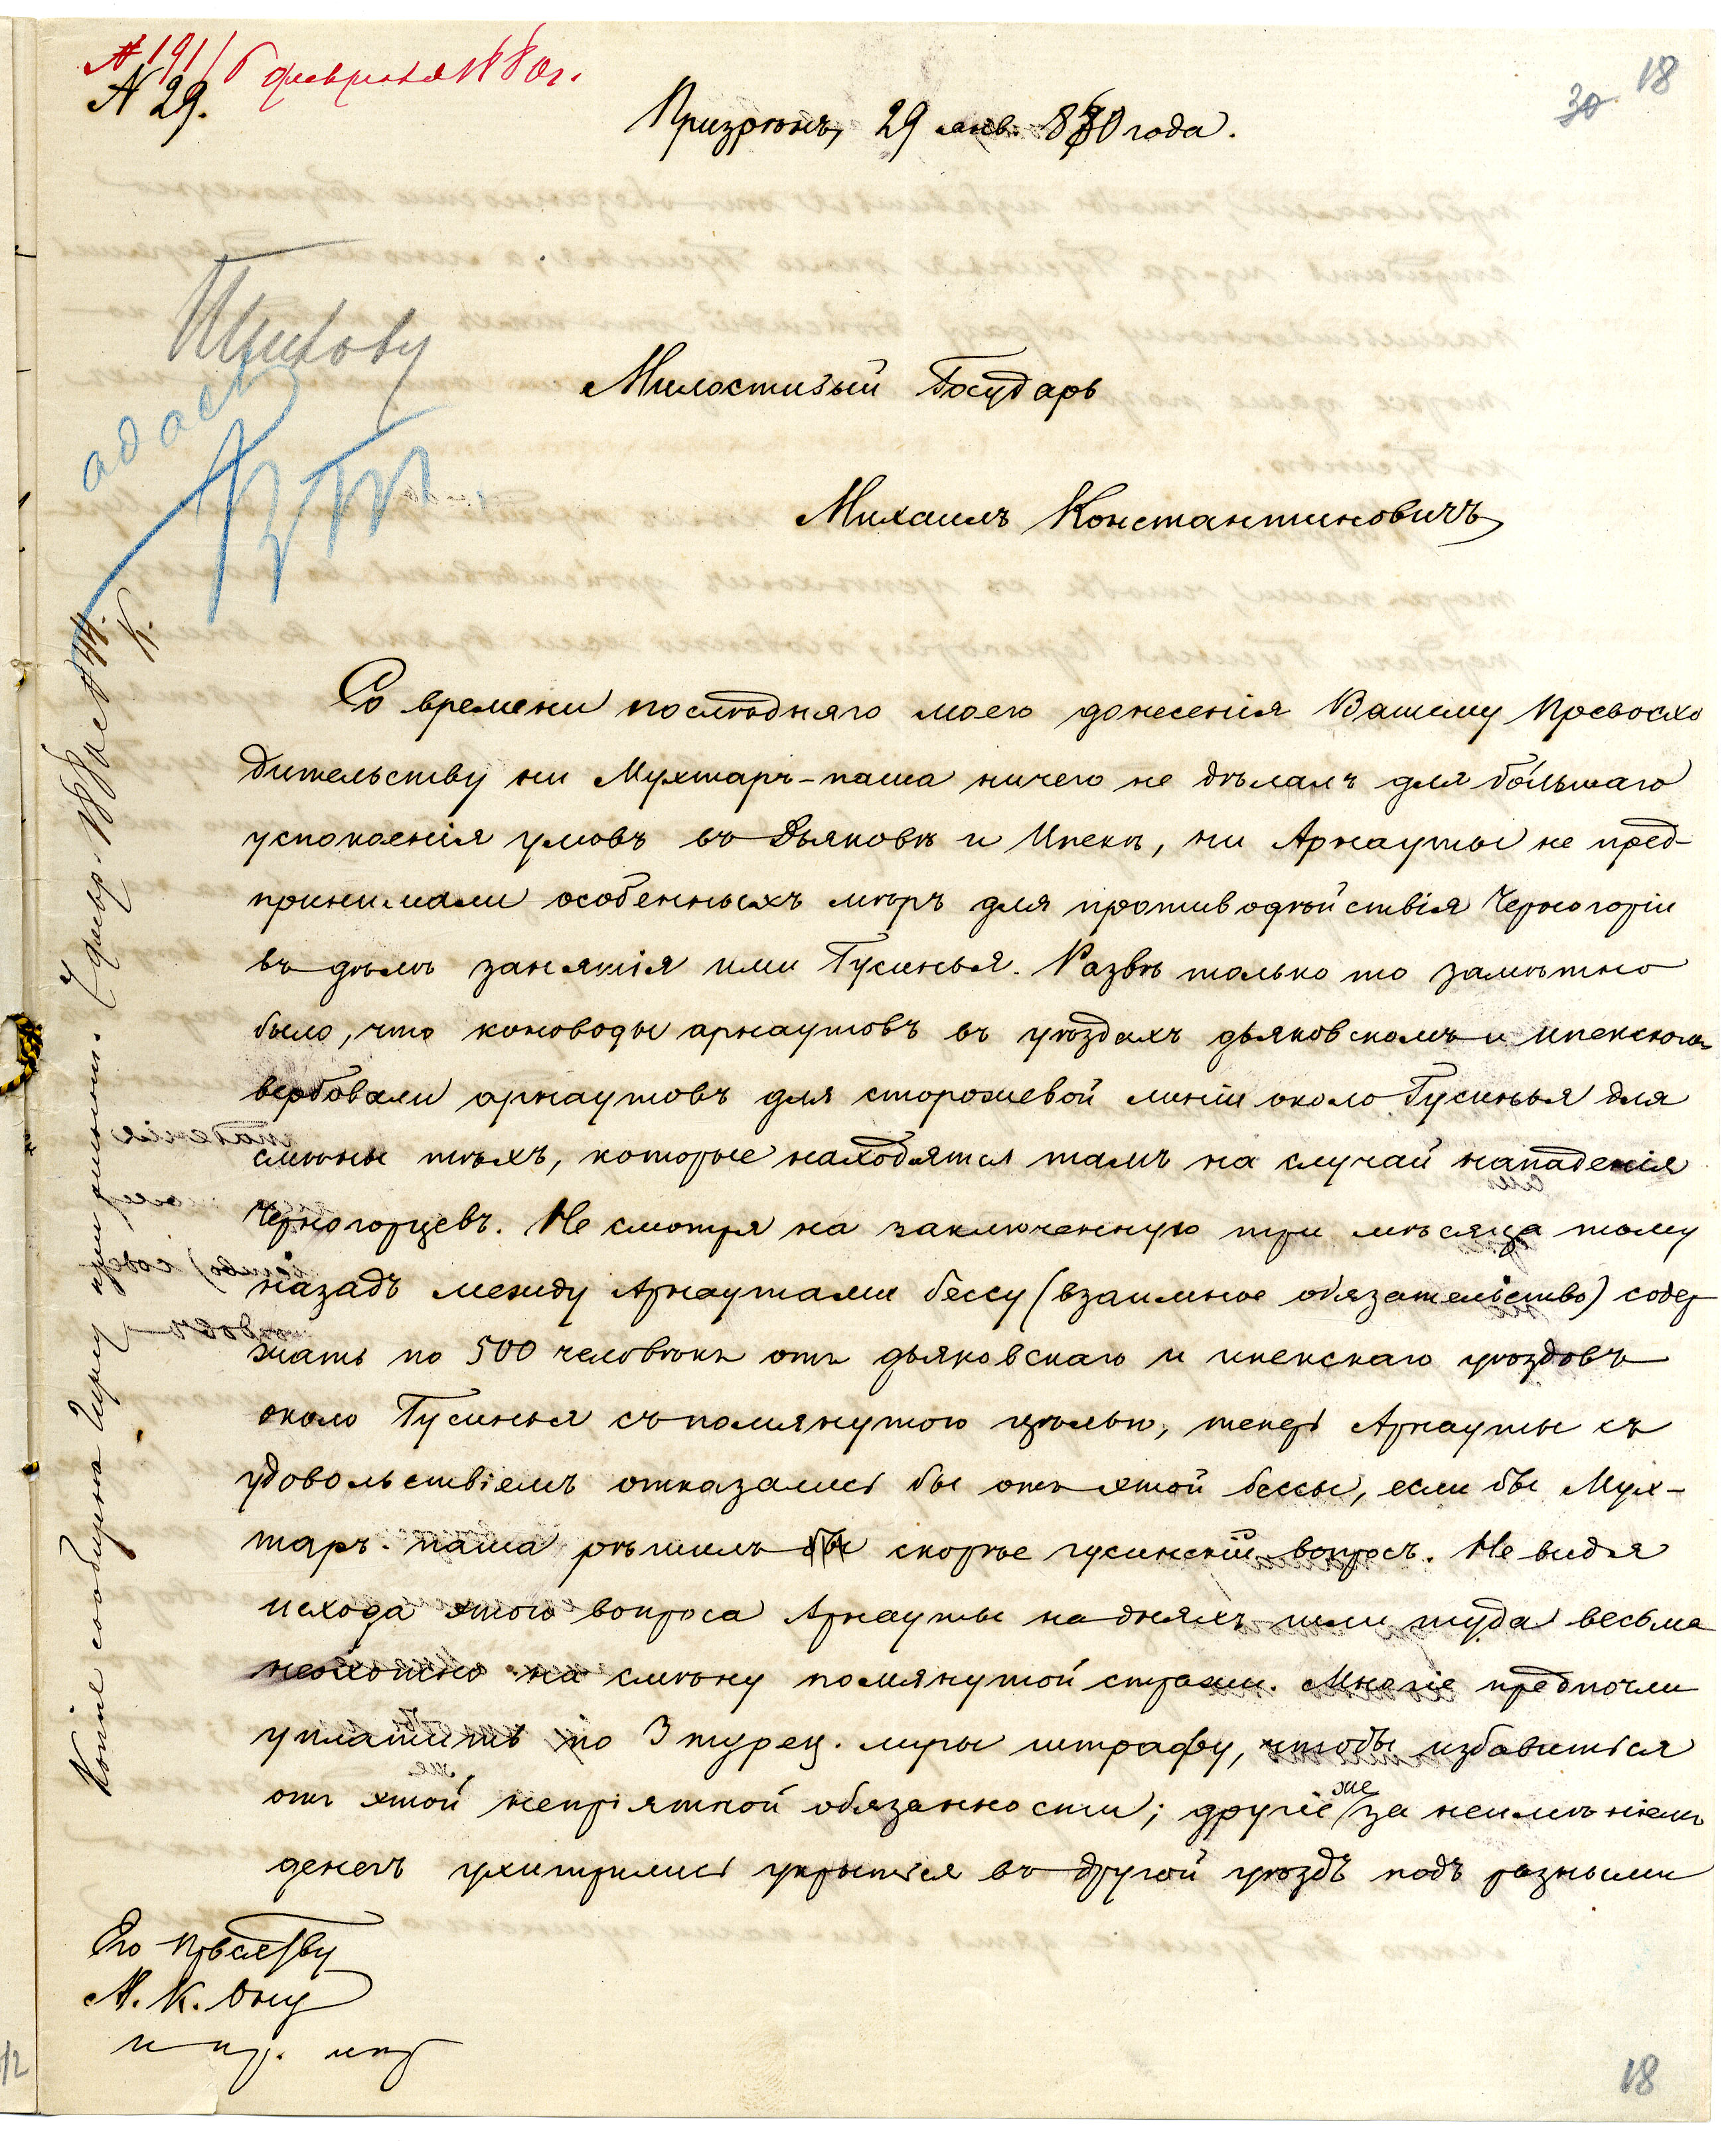 № 191/6 февраля 1880 г.
№ 29.
30 18
Призрѣнъ, 29 янв. 880 года.
Милостивый Государь
Михаилъ Константиновичъ,
Со времени послѣдняго моего донесенія Вашему Превосхо
дительству ни Мухтаръ-паша ничего не дѣлалъ для бо́льшаго
успокоенія умовъ въ Дьяковѣ и Ипекѣ, ни Арнауты не пред-
принимали особенныхъ мѣръ для противодѣйствія Черногоріи
въ дѣлѣ занятія ими Гусинья. Развѣ только то замѣтно
было, что коноводы арнаутовъ въ уѣздахъ дьяковскомъ и ипекскомъ
вербовали арнаутовъ для сторожевой линіи около Гусинья для
смѣны тѣхъ, которые находятся тамъ на случай нападенія
Черногорцевъ. Не смотря на заключенную три мѣсяца тому
назадъ между Арнаутами бессу (взаимное обязательство) содер
жать по 500 человѣкъ отъ дьяковскаго и ипекскаго уѣздовъ
около Гусинья съ помянутою цѣлью, теперь Арнауты съ
удовольствіемъ отказались бы отъ этой бессы, если бы Мух-
таръ-паша рѣшилъ бы скорѣе гусинскій вопросъ. Не видя
исхода этого вопроса Арнауты на дняхъ шли туда весьма
неохотно на смѣну помянутой стражи. Многіе предпочли
уплатить по 3 турец. лиры штрафу, чтобы избавиться
отъ этой непріятной обязанности; другіе же за неимѣніемъ
денегъ ухитрились укрыться въ другой уѣздъ подъ разными
Его Прев-ству
М. К. Ону
и пр. ипр
18
Копія сообщена Церу при отнош. 7 февр. 1880 г. № 44.
К.